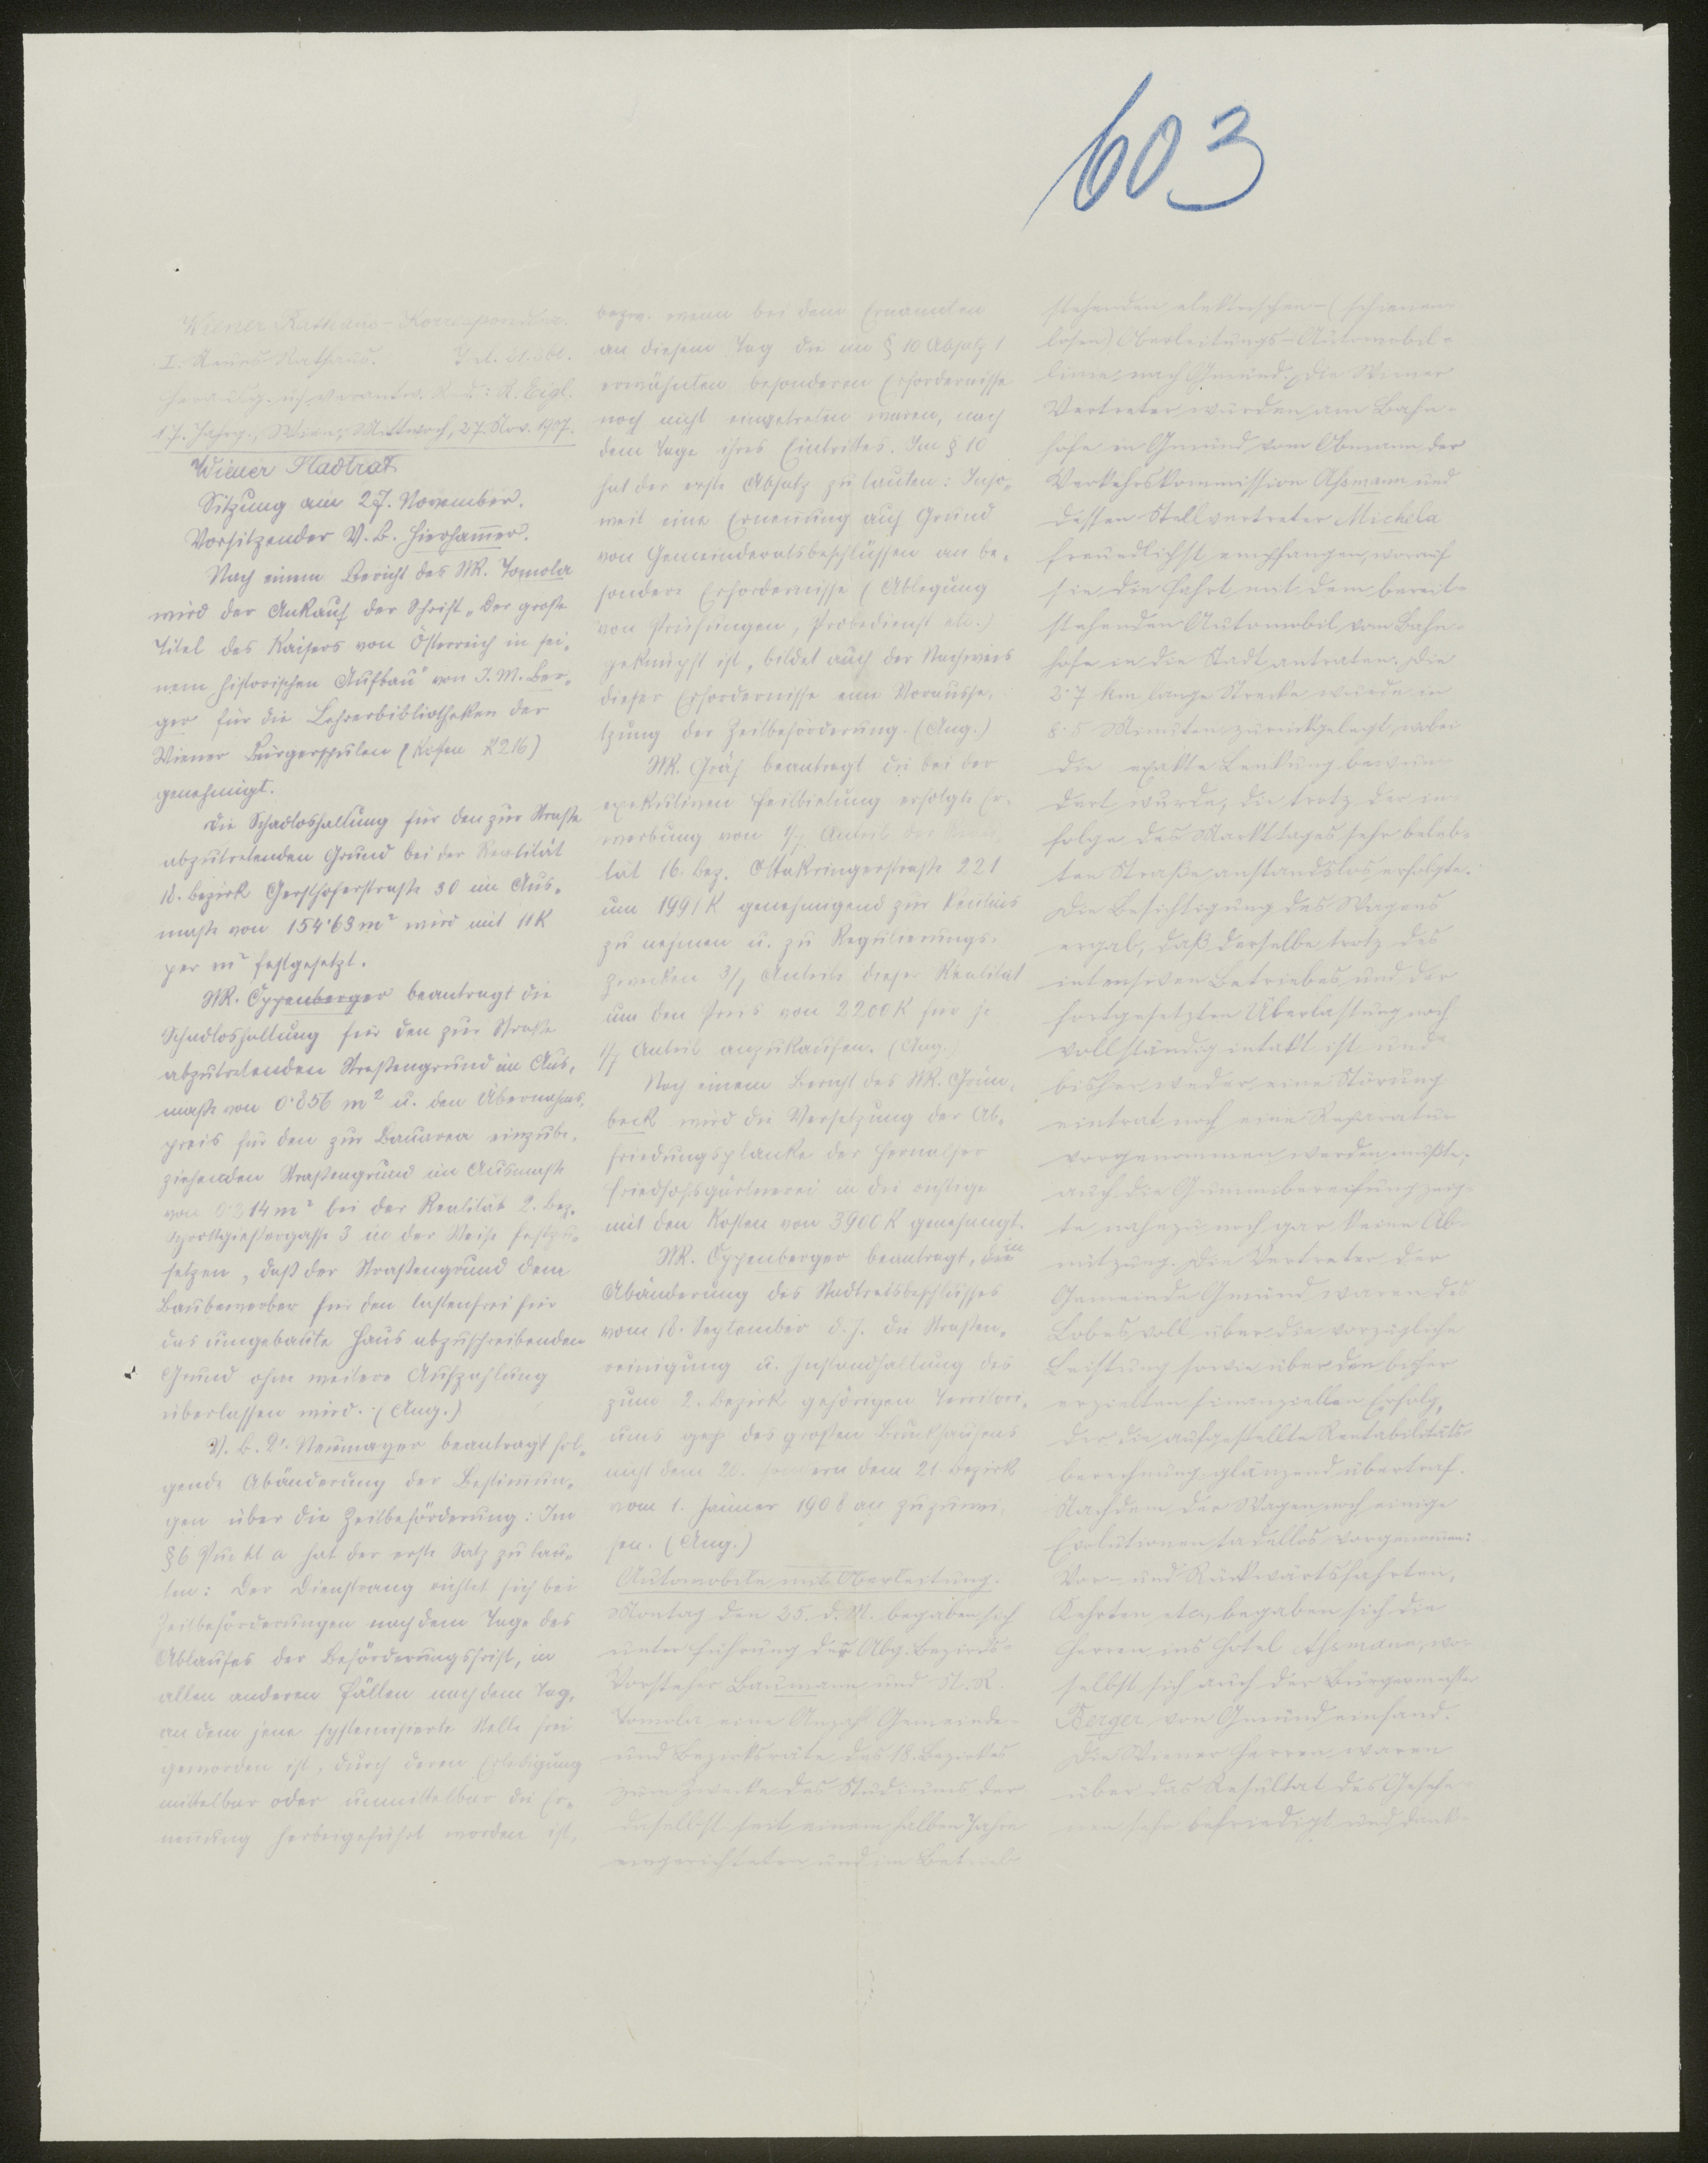 603
Wiener Rathaus-Korrespondenz.
I. Neues Rathaus. Tel.
Herausg. und verantw. Red.: R. Eigl.
17. Jahrg., Wien, Mittwoch, 27. Nov. 1907.
Wiener Stadtrat
Sitzung am 27. November.
Vorsitzender V.B. Hierhammer.
Nach einem Bericht des StR. Tomola
wird der Ankauf der Schrift „Der große
Titel des Kaisers von Österreich in sei-
nem historischen Aufbau“ von J. M. Ber-
ger für die Lehrerbibliotheken der
Wiener Bürgerschulen (Kosten K 216)
genehmigt.
Die Schadloshaltung für den zur Straße
abzutretenden Grund bei der Realität
18. Bezirk Gersthoferstraße 30 im Aus-
maße von 154·63 m² wird mit 11 K
per m² festgesetzt.
StR. Oppenberger beantragt die
Schadloshaltung für den zur Straße
abzutretenden Straßengrund im Aus-
maße von 0·856 m² u. den Übernahms-
preis für den zur Bauarea einzube-
ziehenden Straßengrund im Ausmaße
von m² bei der Realität 2. Bez.
Schrottgießergasse 3 in der Weise festzu-
setzen, daß der Straßengrund dem
Bauwerber für den lastenfrei für
das umgebaute Haus abzuschreibenden
Grund ohne weitere Aufzahlung
überlassen wird. (Ang.)
V.B. Dr. Neumayer beantragt fol-
gende Abänderung der Bestimmun-
gen über die Zeitbeförderung: Im
§ 6 Punkt a hat der erste Satz zu lau-
ten: Der Dienstrang richtet sich bei
Zeitbeförderungen nach dem Tage des
Ablaufes der Beförderungsfrist, in
allen anderen Fällen nach dem Tag,
an dem jene systemisierte Stelle frei
geworden ist, durch deren Erledigung
mittelbar oder unmittelbar die Er-
nennung herbeigeführt worden ist,
bezw. wenn bei dem Ernannten
an diesem Tag die im § 10 Absatz 1
erwähnten besonderen Erfordernisse
noch nicht eingetreten waren, nach
dem Tage ihres Eintrittes. Im § 10
hat der erste Absatz zu lauten: Inso-
weit eine Ernennung auf Grund
von Gemeinderatsbeschlüssen an be-
sondere Erfordernisse (Ablegung
von Prüfungen, Probedienst etc.)
geknüpft ist, bildet auch der Nachweis
dieser Erfordernisse eine Vorausse-
tzung der Zeitbeförderung. (Ang.)
StR. Gräf beantragt die bei der
exekutiven Feilbietung erfolgte Er-
werbung von 1/7 Anteil der Reali-
tät 16. Bez. Ottakringerstraße 221
um 1991 K genehmigend zur Kenntnis
zu nehmen u. zu Regulierungs-
zwecken 3/7 Anteile dieser Realität
um den Preis von 2200 K für je
1/7 Anteil anzukaufen. (Ang.)
Nach einem Bericht des StR. Grün-
beck wird die Versetzung der Ab-
friedungsplanke der Hernalser
Friedhofsgärtnerei in die richtige
mit den Kosten von 3900 K genehmigt.
StR. Oppenberger beantragt, in
Abänderung des Stadtratsbeschlusses
vom 18. September d. J. die Straßen-
reinigung u. Instandhaltung des
zum 2. Bezirk gehörigen Territori-
ums des großen Bruckhaufens
nicht dem 20. sondern dem 21. Bezirk
vom 1. Jänner 1908 an zuzuwei-
sen. (Ang.)
Automobile mit Oberleitung.
Montag den 25. d. M. begaben sich
unter Führung des Abg. Bezirks-
Vorsteher Baumann und St.R.
Tomola eine Anzahl Gemeinde-
und Bezirksräte des 18. Bezirkes
zum Zwecke des Studiums der
daselbst seit einem halben Jahre
eingerichteten und im Betrieb
stehenden elektrischen (schienen-
losen) Oberleitungs-Automobil-
linie nach Gmünd. Die Wiener
Vertreter wurden am Bahn-
hofe in Gmünd vom Obmann der
Verkehrskommission Assmann und
dessen Stellvertreter Michela
freundlichst empfangen, worauf
sie die Fahrt mit dem bereit-
stehenden Automobil vom Bahn-
hofe in die Stadt antraten. Die
2·7 km lange Strecke wurde in
8·5 Minuten zurückgelegt, wobei
die exakte Lenkung bewun-
dert wurde, die trotz der in-
folge des Markttages sehr beleb-
ten Straße anstandslos erfolgte.
Die Besichtigung des Wagens
ergab, daß derselbe trotz des
intensiven Betriebes und der
fortgesetzten Überlastung noch
vollständig intakt ist und
bisher weder eine Störung
eintrat noch eine Reparatur
vorgenommen werden mußte;
auch die Gummibereifung zeig-
te nahezu noch gar keine Ab-
nützung. Die Vertreter der
Gemeinde Gmünd waren des
Lobes voll über die vorzügliche
Leistung sowie über den bisher
erzielten finanziellen Erfolg,
der die aufgestellte Rentabilitäts-
berechnung glänzend übertraf.
Nachdem der Wagen noch einige
Evolutionen tadellos vorgenommen:
Vor- und Rückwärtsfahrten,
Kehrten etc., begaben sich die
Herren ins Hotel Assmann, wo-
selbst sich auch der Bürgermeister
Berger von Gmünd einfand.
Die Wiener Herren waren
über das Resultat des Gesehe-
nen sehr befriedigt und dank-